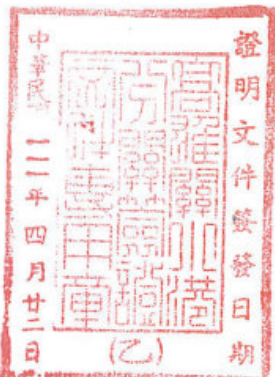 證明文件簽發日期
高雄關小港
分關簽證
件專用章
(乙)
中華民 一一一年四月廿二日